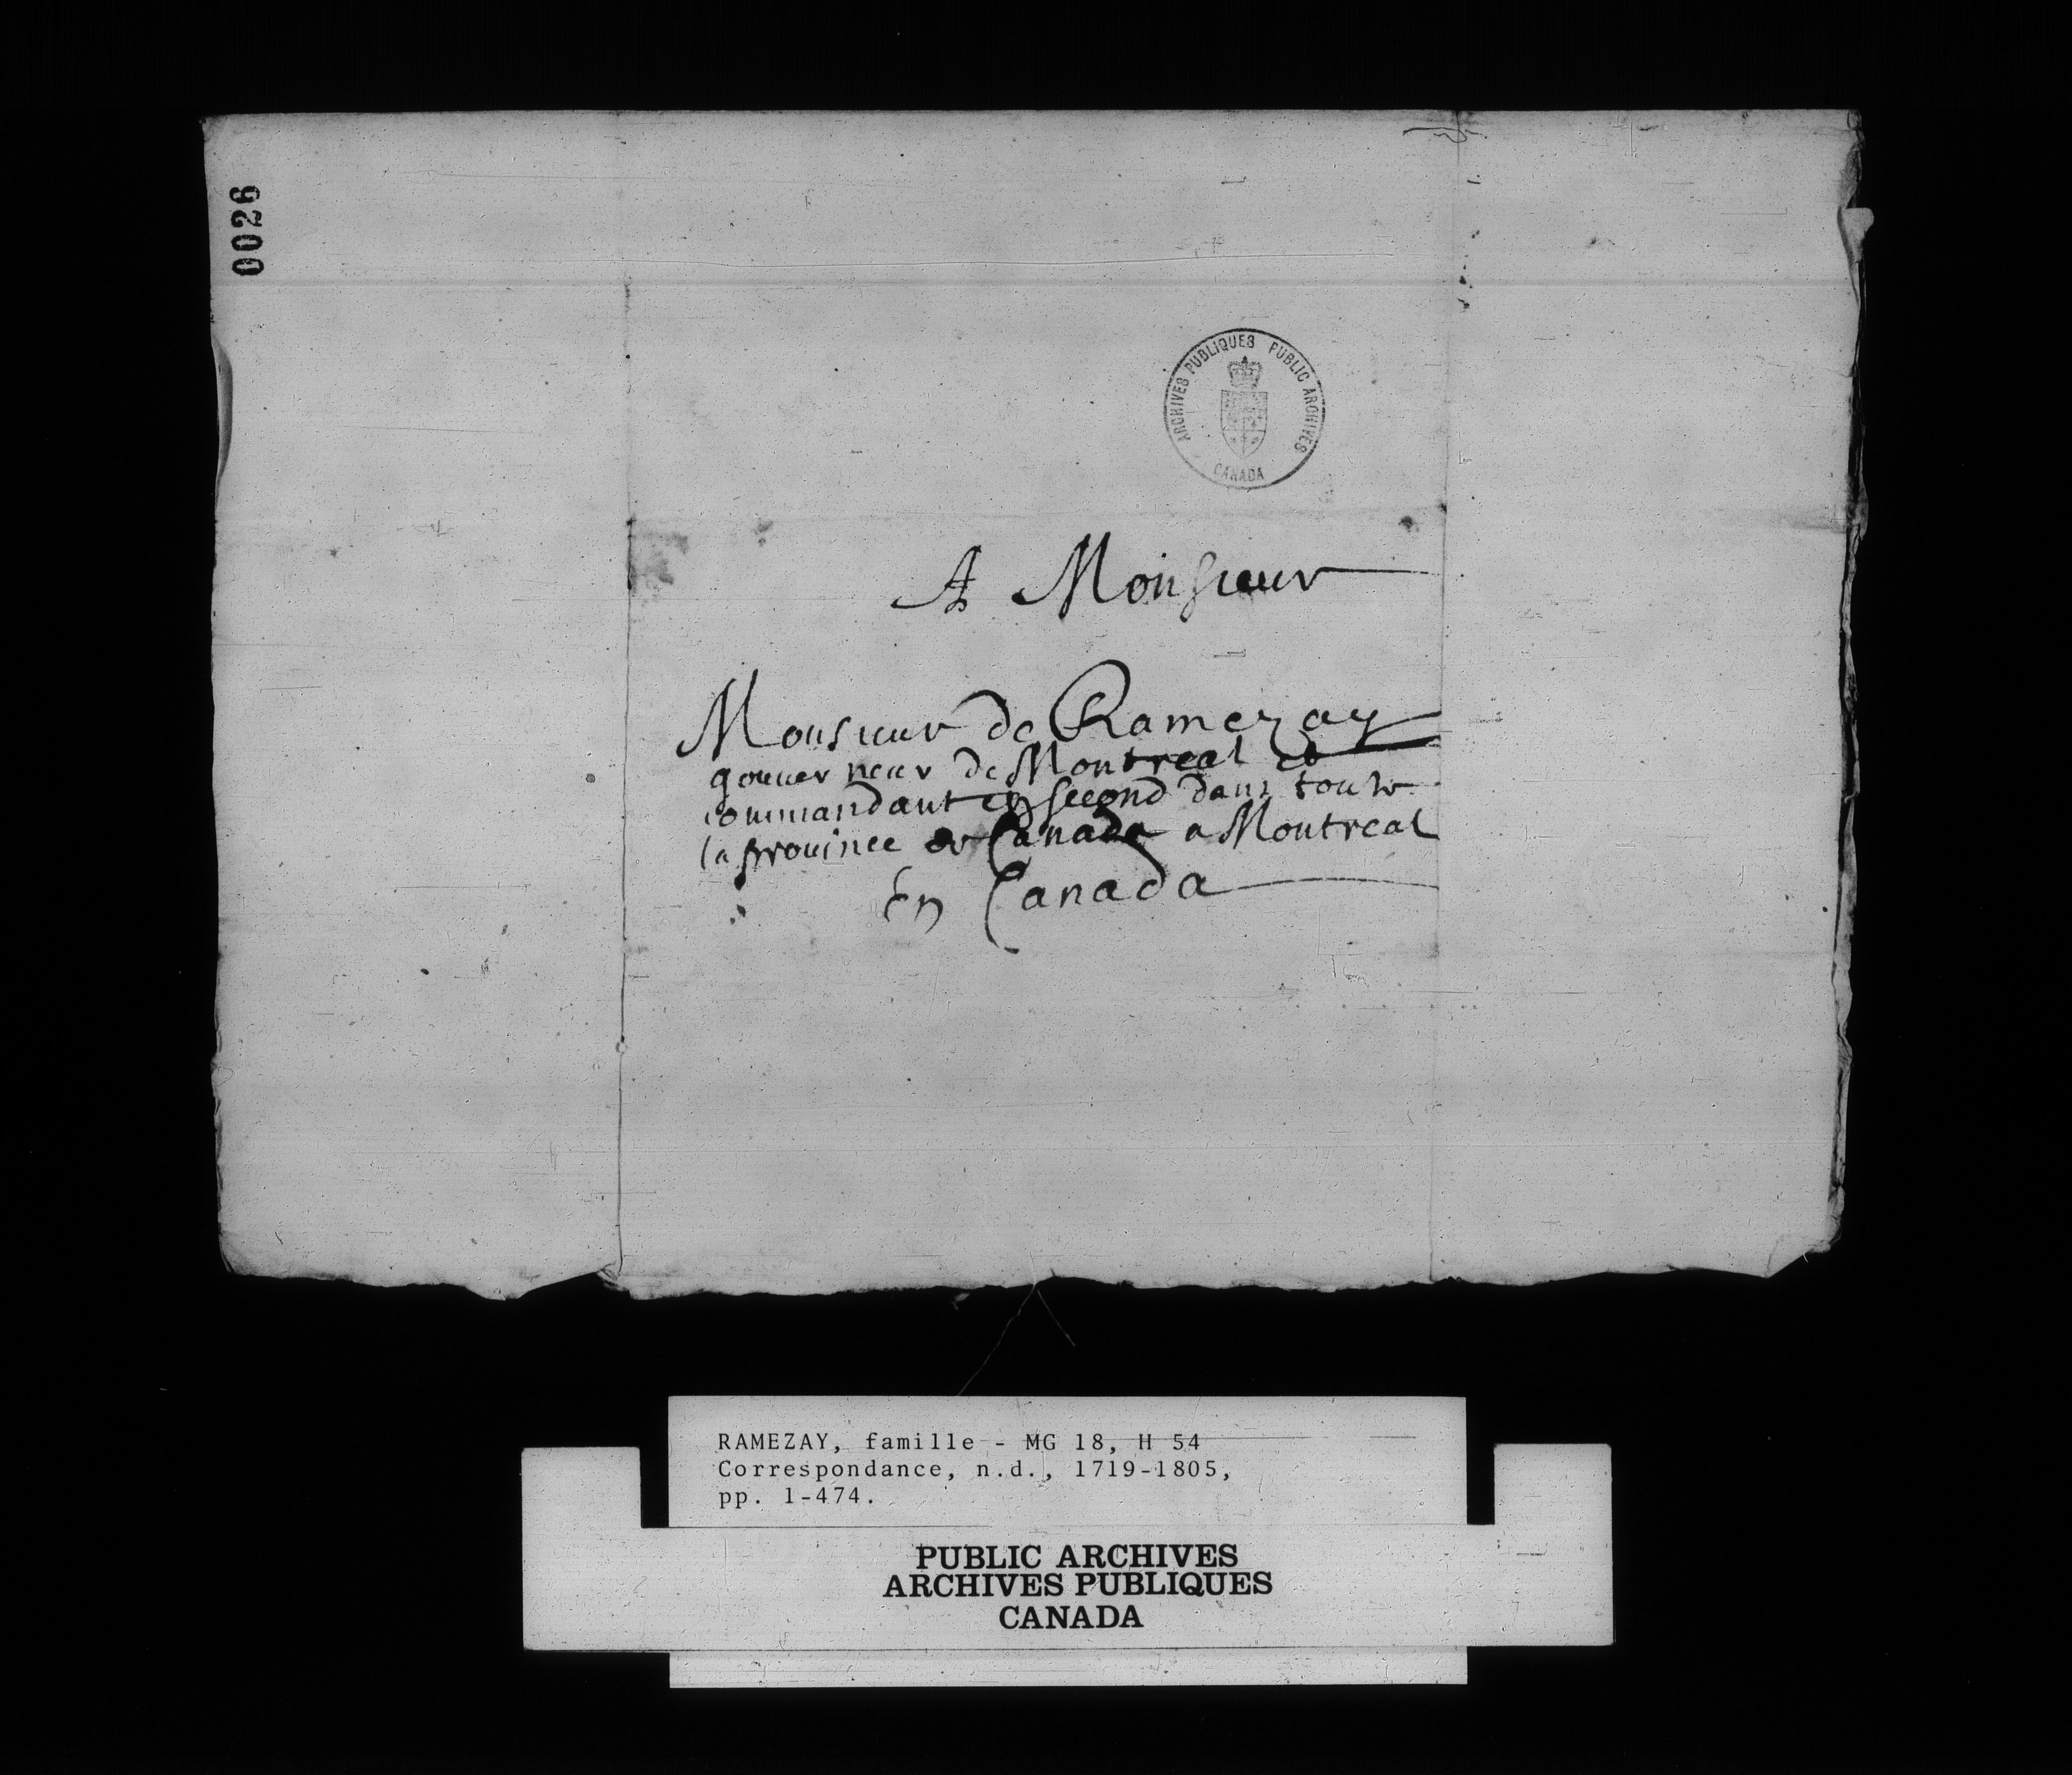 0026
ARCHIVES PUBLIQUES PUBLIC ARCHIVES
CANADA
A Monsieur
Monsieur de Ramezay
gouuerneur de Montreal et
commandant en second dans toute
la prouince de Canada a Montreal
En Canada
RAMEZAY, famille - MG 18, H 54
Correspondance, n.d., 1719-1805,
pp. 1-474.
PUBLIC ARCHIVES
ARCHIVES PUBLIQUES
CANADA